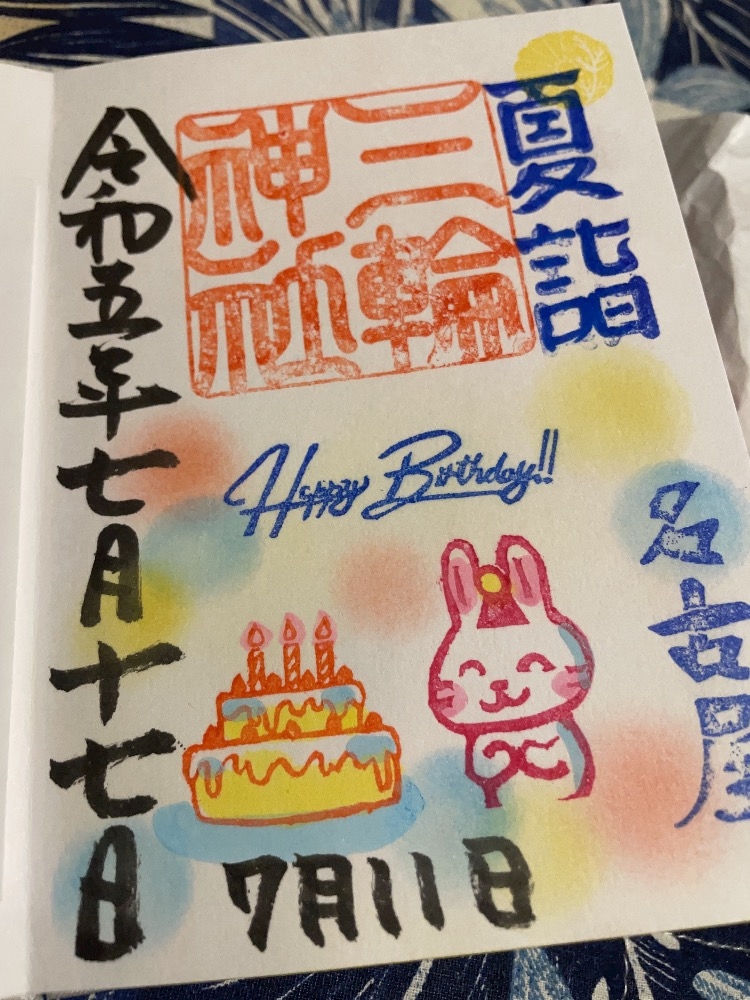 夏詣
三輪
神社
名古屋
Happy Birthday!!
7月11日
令和五年七月十七日